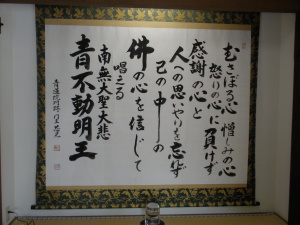 むさぼるい憎しみの心
怒りの心に負けず
感謝の心と
人への思いやりを忘れず
己の中の
佛の心を信じて
唱える
南無大聖大悲
青不動明王
青蓮院門跡